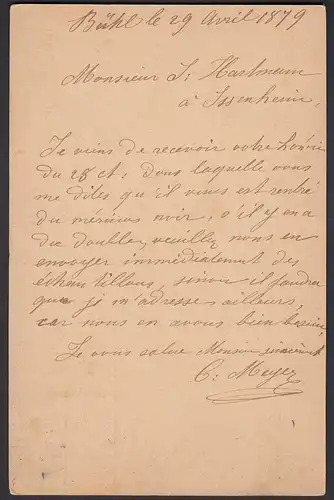 Bühl le 29 Avril 1879
Monsieur J: Hartmann
à Issenheim,
Je viens de recevoir votre honorée
du 28 ct. Dans laquelle vous
me dites qu'il vous est rentré
du mérinos noir, s'il y en a
du double, veuillez nous en
envoyer immédiatement des
échantillons, sinon il faudra
que je m'adresse ailleurs,
car nous en avons bien besoin,
Je vous salue Monsieur sincèrement
C: Meyer